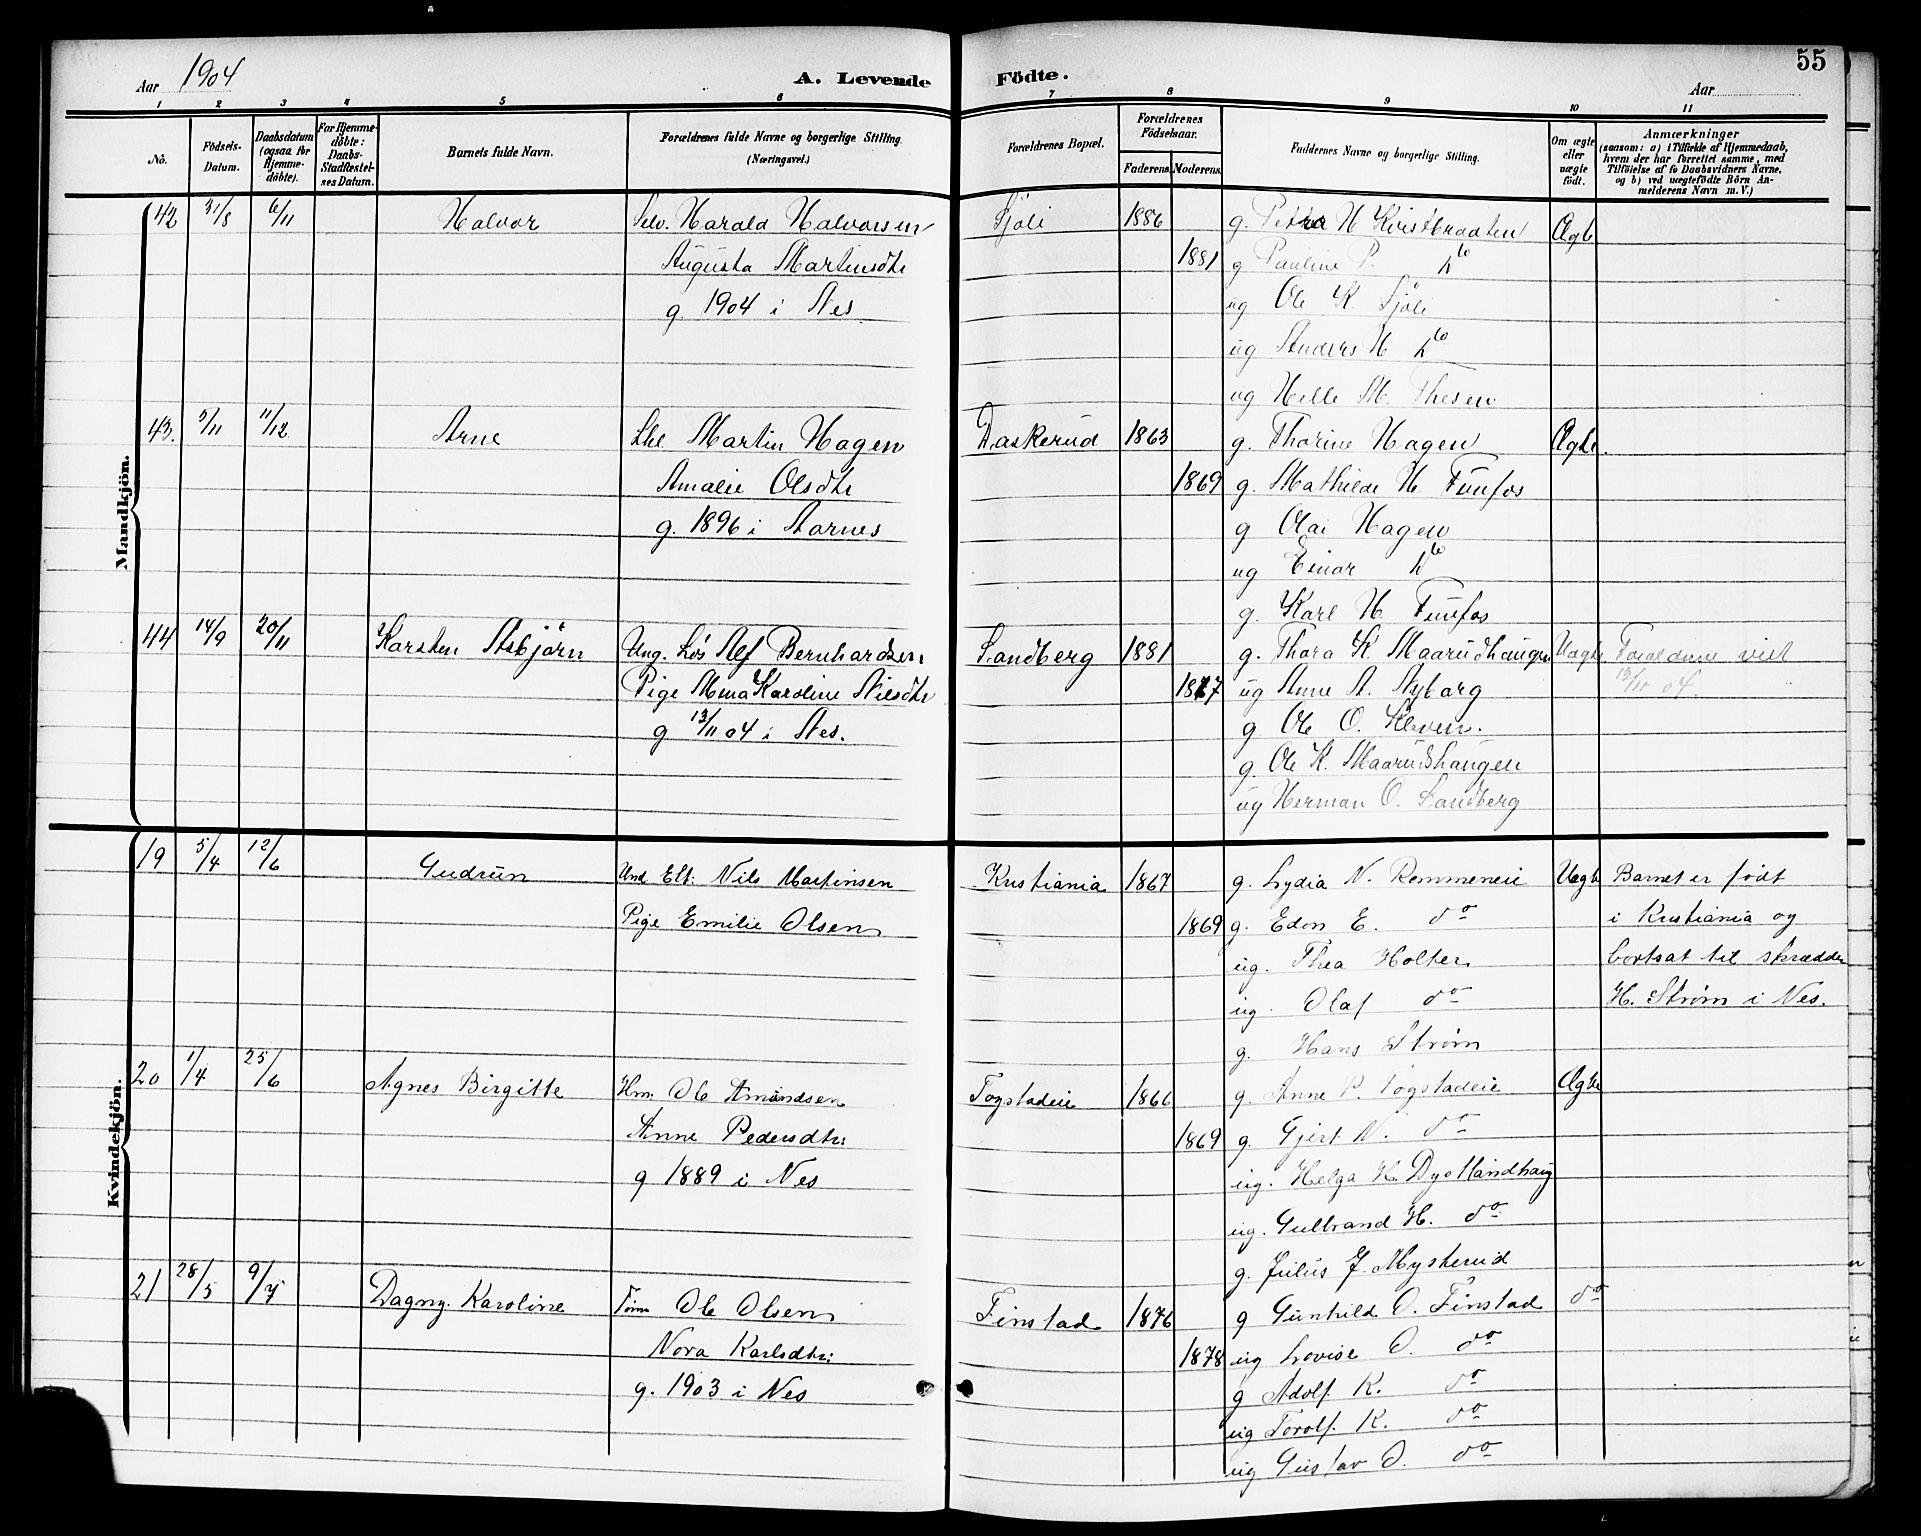 55
Aar 1904
A. Levende Födte.
Aar
1 2 3 4 5 6 7 8 9 10 11
No.
Födsels-Datum.
Daabsdatum (ogsaa for Hjemme-döbte).
For Hjemme-döbte: Daabs-Stadfestel-ses Datum.
Barnets fulde Navn.
Forældrenes fulde Navne og borgerlige Stilling. (Næringsvei.)
Forældrenes Bopæl.
Forældrenes Födselsaar.
Faderens. Moderens.
Faddernes Navne og borgerlige Stilling.
Om ægte eller uægte født.
Anmærkninger
(saasom: a) i Tilfælde af Hjemmedaab,
hvem der har forrettet samme, med
Tilföielse af to Daabsvidners Navne,
og b) ved uægtefödte Börn An-
melderens Navn m. V.)
Mandkjön.
42 31/8 6/11 Halvor Selv. Harald Halvorsen Sjöli 1886 g. Petra H Kvistbraaten Ægte
Augusta Martinsdtr 1881 g Pauline P. do
g. 1904 i Nes ug Ole K Sjöli
ug Anders H do
ug Helle M. Thesen
43. 5/11 11/12 Arne Martin Hagen Daskerud 1863 g. Thorine Hagen Ægte.
Amalie Olsdtr 1869 g. Mathilde H. Funfos
g. 1896 i Aarnes g Olai Hagen
ug Einar do
g. Karl H. Funfos
44 14/9 20/11 Karsten Asbjörn Ung. Løs Alf Bernhardsen Sandberg 1881 g. Thora K Maarudhaugen Uægte Foreldrene viet
Pige Alma Karoline Nilsdtr 1877 ug Anne A. Nyborg 13/11 04.
g 13/11 04 i Nes. g Ole O. Kleven.
g. Ole K. Maarudshaugen
ug Herman O. Sandberg
Kvindekjön.
19 5/4 12/6 Gudrun Und Elt. Nils Martinsen Kristiania 1867 g. Lydia N. Rommeneie Uægte Barnet er født
Pige Emilie Olsen 1869 g. Edon E. do i Kristiania og
ug. Thea Holter bortsat til skrædder
ug. Olaf do H. Strøm i Nes.
g. Hans Strøm
20 1/4 25/6 Agnes Birgitte Hm. Ole Amundsen Fogstadeie 1866 g. Anne P. Fogstadeie Ægte
Anne Pedersdtr: 1869 g. Gjert N. do
g 1889 i Nes ug. Helga H. Dystlandhaug
ug. Gulbrand H. do
g. Julius J. Mysterud
21 28/5 9/7 Dagny Karoline Tøm Ole Olsen Finstad 1876 g Gunhild O. Finstad do
Nora Karlsdtr: 1878 ug Lovise O. do
g. 1903 i Nes g Adolf K. do
ug Torolf K. do
ug Gustav O. do